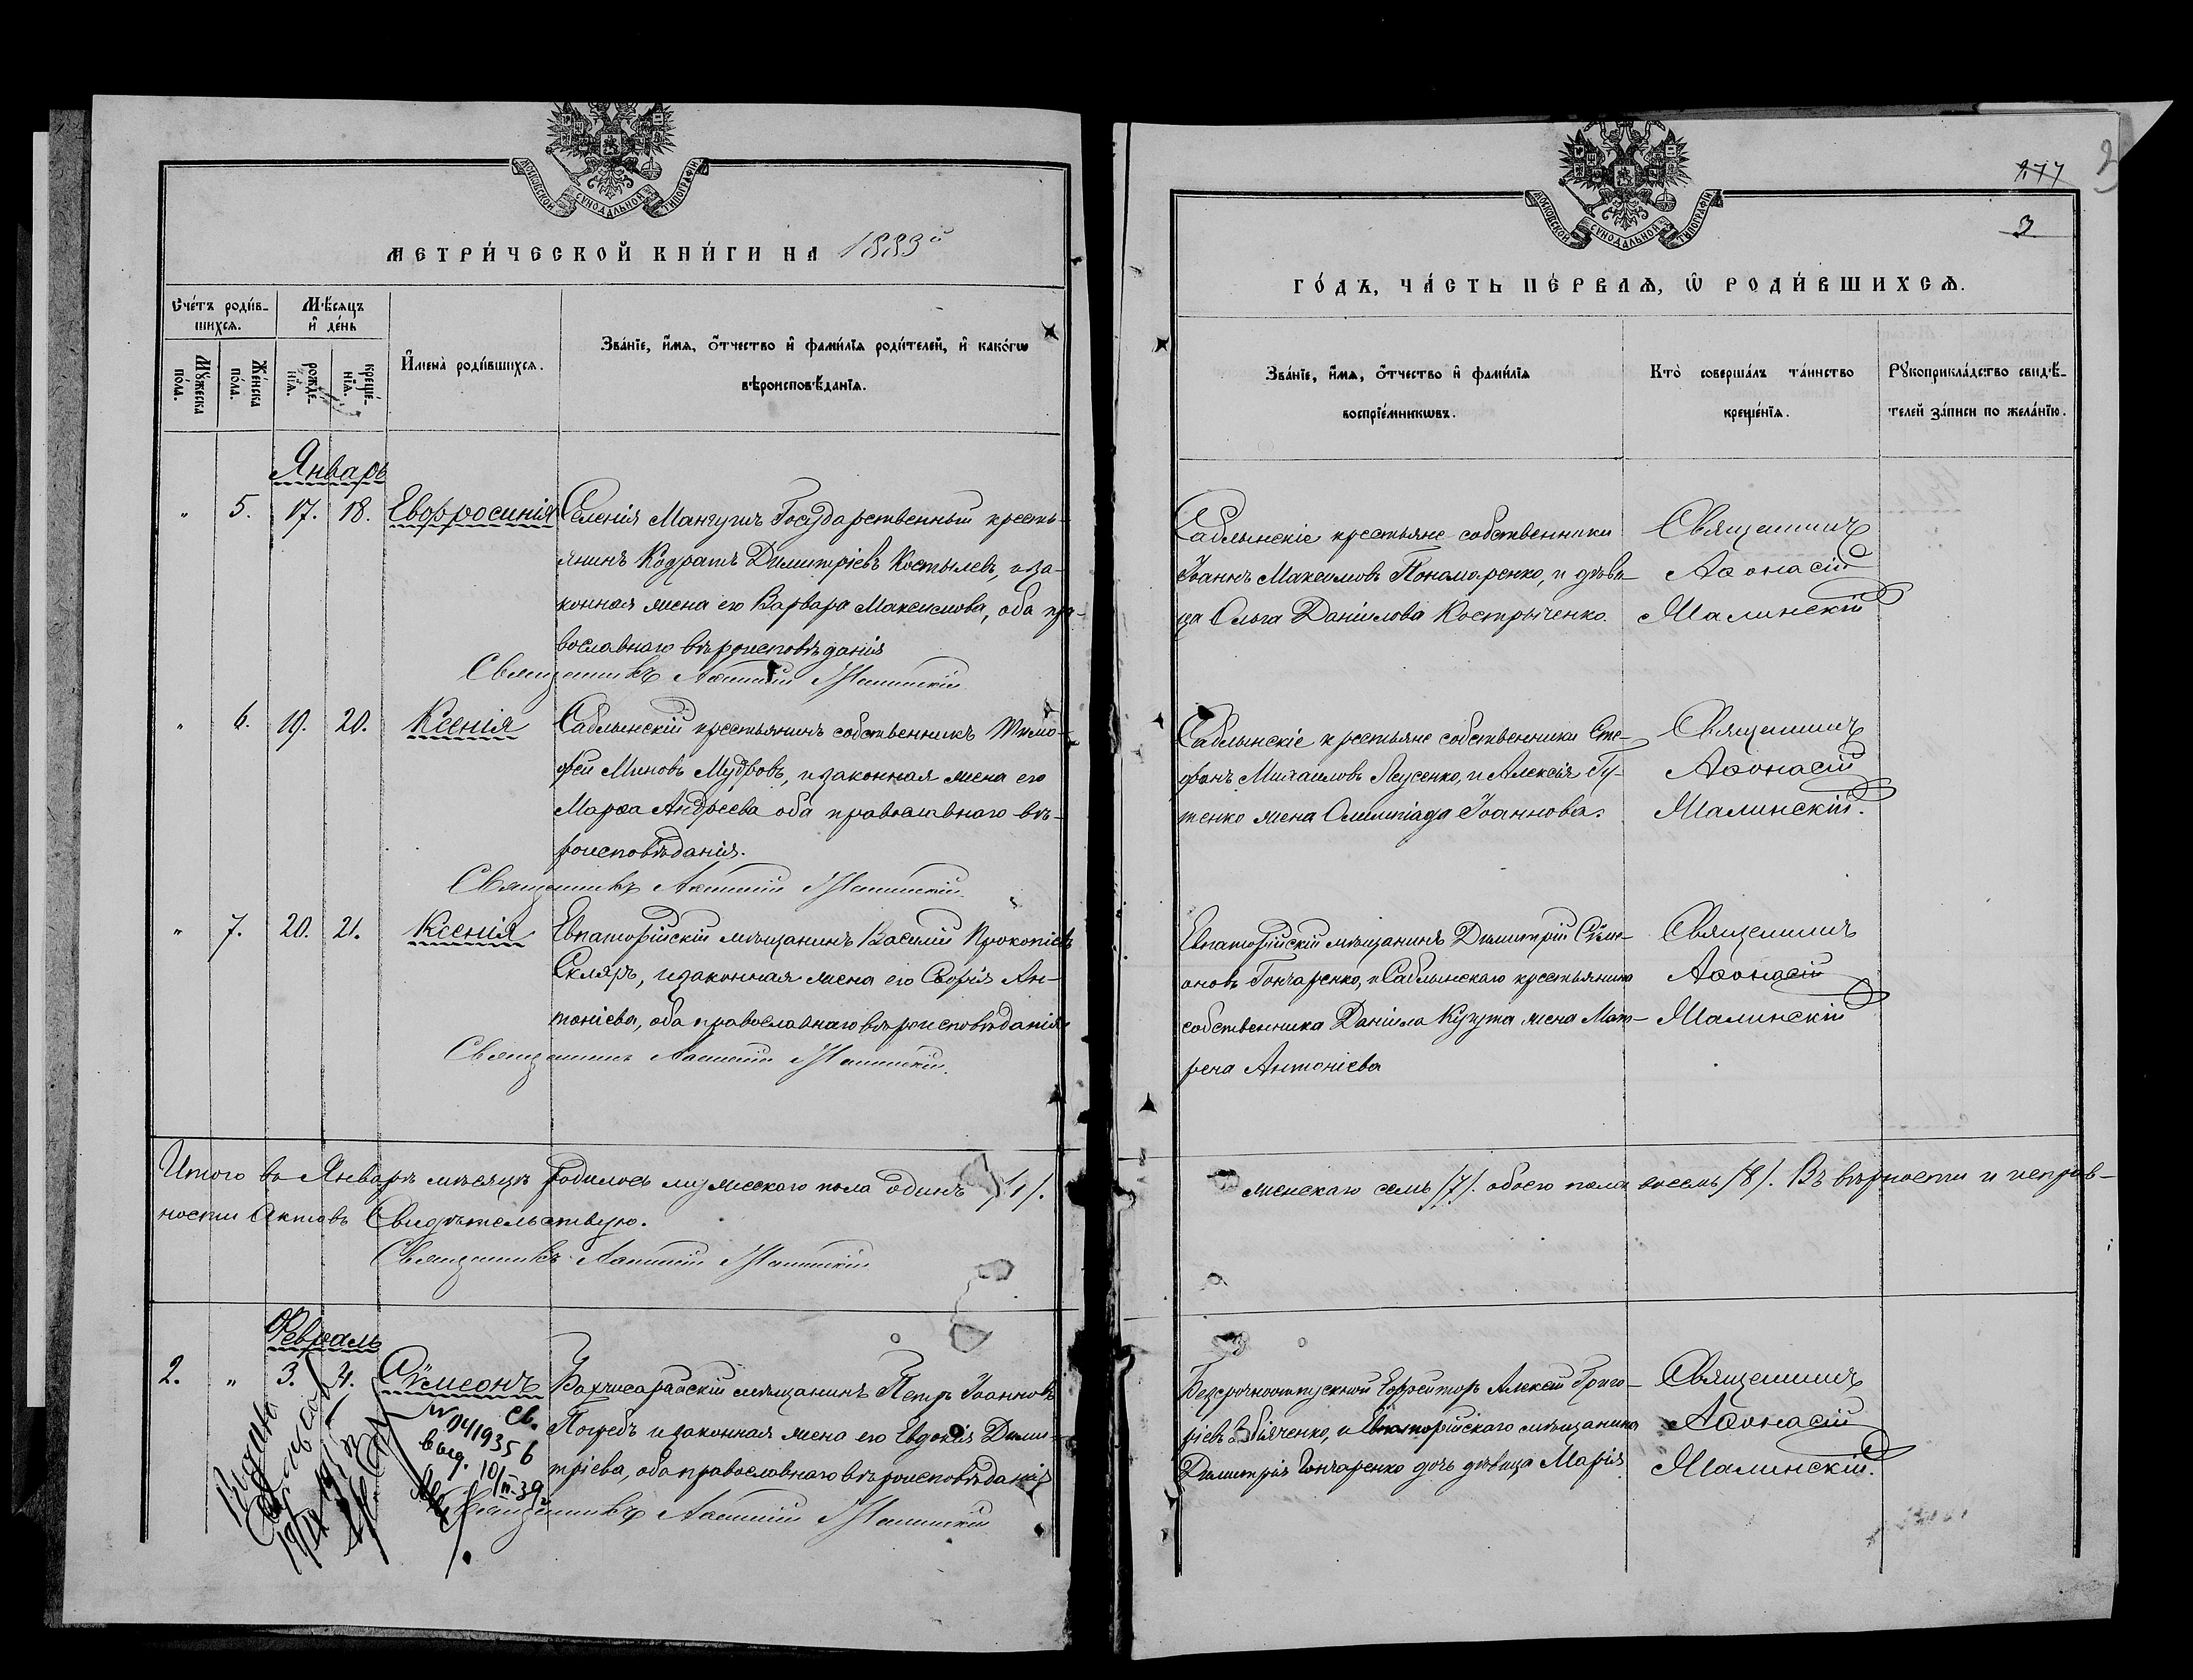 МОСКОВСКОЙ СѴНОДАЛЬНОЙ ТИПОГРАФІИ
МЕТРИ́ЧЕСКОЙ КНИ́ГИ НА 1883й
Сче́тъ роди́в-
шихсѧ.
Мѣ́сяцъ
и҆ де́нь
Мꙋ́жеска
по́ла.
Же́нска
по́ла.
рожде́-
нїѧ.
креще́-
нїѧ.
И҆мена̀ роди́вшихсѧ.
Зва́нїе, и҆́мѧ, ѻ҆́тчество и҆ фами́лїѧ роди́телей, и҆ како́гѡ
вѣроисповѣ́данїѧ.
Январь
" 5. 17. 18. Евфросинія Селенія Мангушъ Государственный кресть-
янинъ Кодратъ Димитріевъ Костылевъ, и за-
конная жена его Варвара Максимова, оба пра-
вославнаго вѣроисповѣданія
Священникъ Аѳанасій Малинскій
" 6. 19. 20. Ксенія Саблынскій крестьянинъ собственникъ Тимо-
фей Миновъ Мудровъ, и законная жена его
Марѳа Андреева оба православнаго вѣ-
роисповѣданія.
Священникъ Аѳанасій Малинскій
" 7. 20. 21. Ксенія Евпаторійскій мѣщанинъ Василій Прокопіевъ
Скляръ, и законная жена его Софія Ан-
тоніева, оба православнаго вѣроисповѣданія
Священникъ Аѳанасій Малинскій.
Итого въ Январѣ мѣсяцѣ родилось мужескаго пола одинъ /1/.
ности актовъ Свидѣтельствую.
Священникъ Аѳанасій Малинскій
Февраль
2. " 3. 4. Сѵмеонъ Бахчисарайскій мѣщанинъ Петръ Іоанновъ
Погребъ и законная жена его Евдокія Дими-
тріева, оба православнаго вѣроисповѣданія
Священникъ Аѳанасій Малинскій
св.
№ 0419356
выд. 10/II-39 г.
177
3
МОСКОВСКОЙ СѴНОДАЛЬНОЙ ТИПОГРАФІИ
ГО́ДЪ, ЧА́СТЬ ПЕ́РВАѦ, Ѡ҆ РОДИ́ВШИХСѦ.
Зва́нїе, и҆́мѧ, ѻ҆́тчество и҆ фами́лїѧ
воспрїе́мникѡвъ.
Кто̀ соверша́лъ та́инство
креще́нїѧ.
Рꙋкоприкла́дство свидѣ́-
телей за́писи по жела́нїю.
Саблынскіе крестьяне собственники Священникъ
Іоаннъ Максимовъ Пономаренко, и дѣви- Аѳонасій
ца Ольга Даніилова Костриченко. Малинскій
Саблынскіе крестьяне собственники Сте- Священникъ
фанъ Михаиловъ Яусенко, и Алексія Гу- Аѳонасій
тенко жена Олимпіада Іоаннова. Малинскій.
Евпаторійскій мѣщанинъ Димитрій Сѵме- Священникъ
оновъ Гончаренко, и Саблынскаго крестьянина Аѳонасій
собственника Даніила Кузута жена Мат- Малинскій
рена Антоніева
женскаго семь /7/. обоего пола восемь /8/. Въ вѣрности и исправ-
Безсрочноотпускной Ефрейторъ Алексій Григо- Священникъ
ріевъ Бѣяченко, и Евпаторійскаго мѣщанина Аѳонасій
Димитрія Гончаренко дочь дѣвица Марія Малинскій.